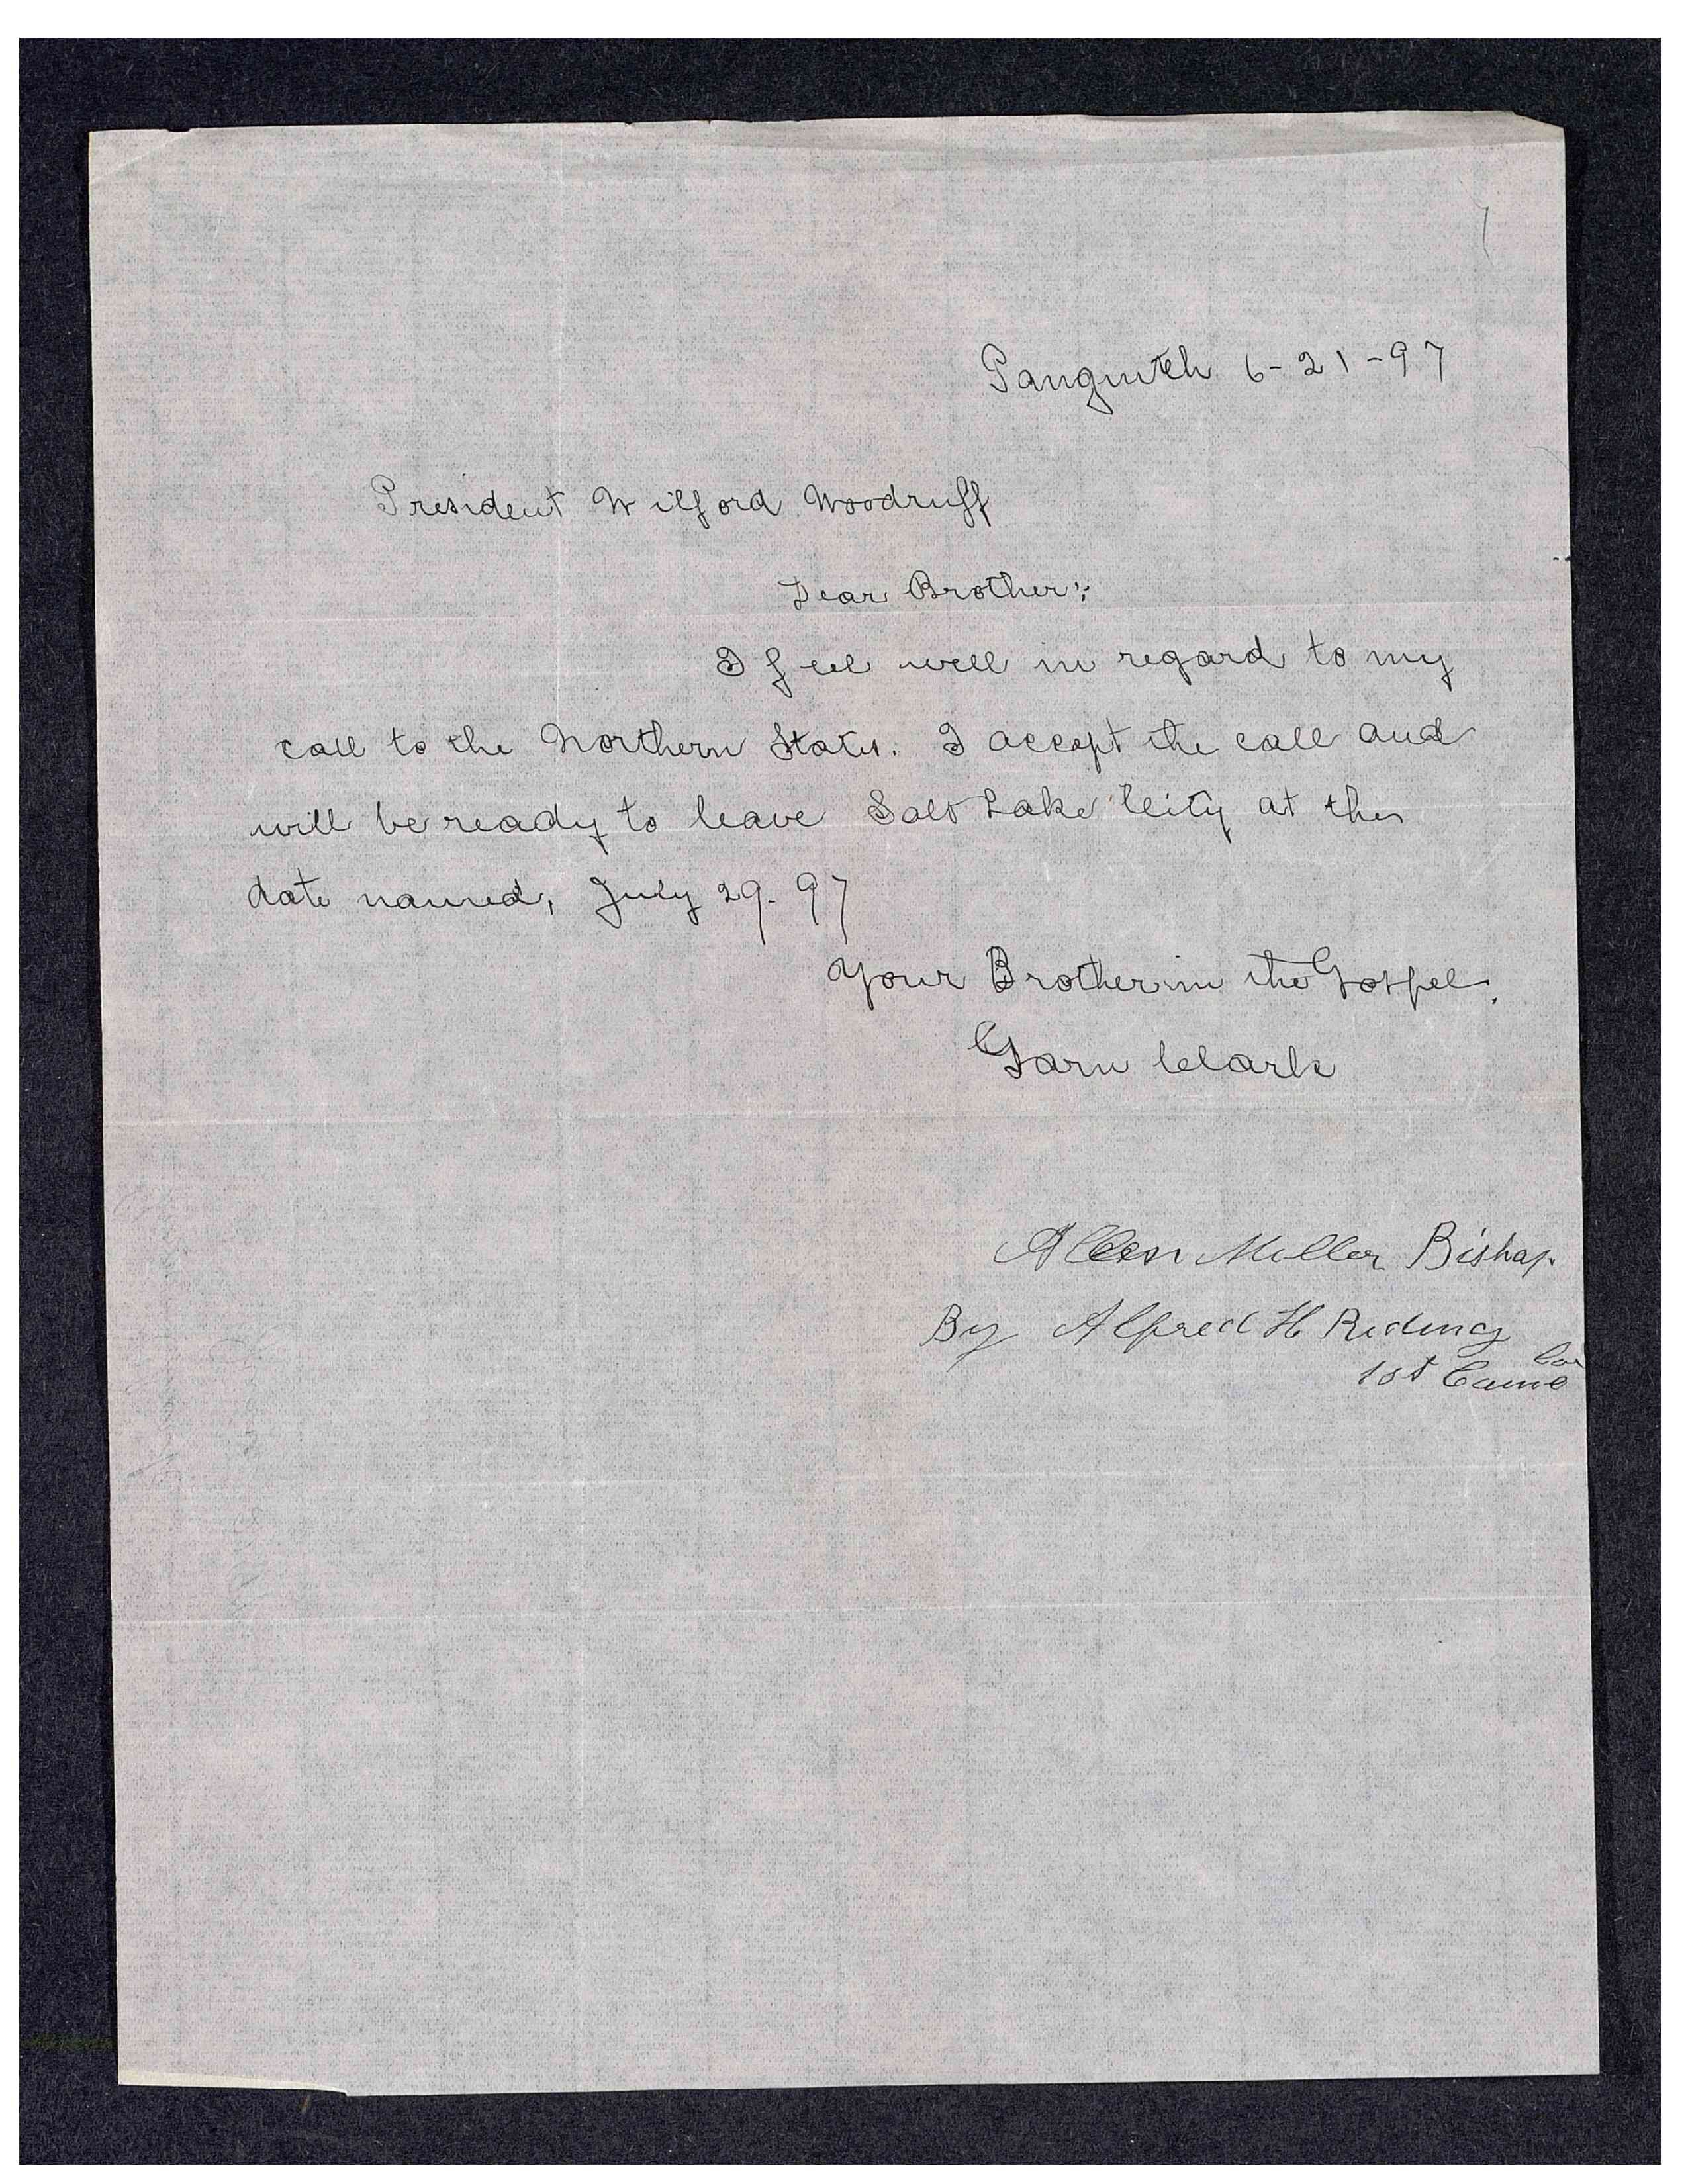 Panguitch 6-21-97
President Wilford Woodruff
Dear Brother:
I feel well in regard to my
call to the Northern States. I accept the call and
will be ready to leave Salt Lake City at the
date named, July 29. 97
Your Brother in the Gospel.
Garn Clark
Allen Miller Bishop.
By Alfred H Riding
1st Counc